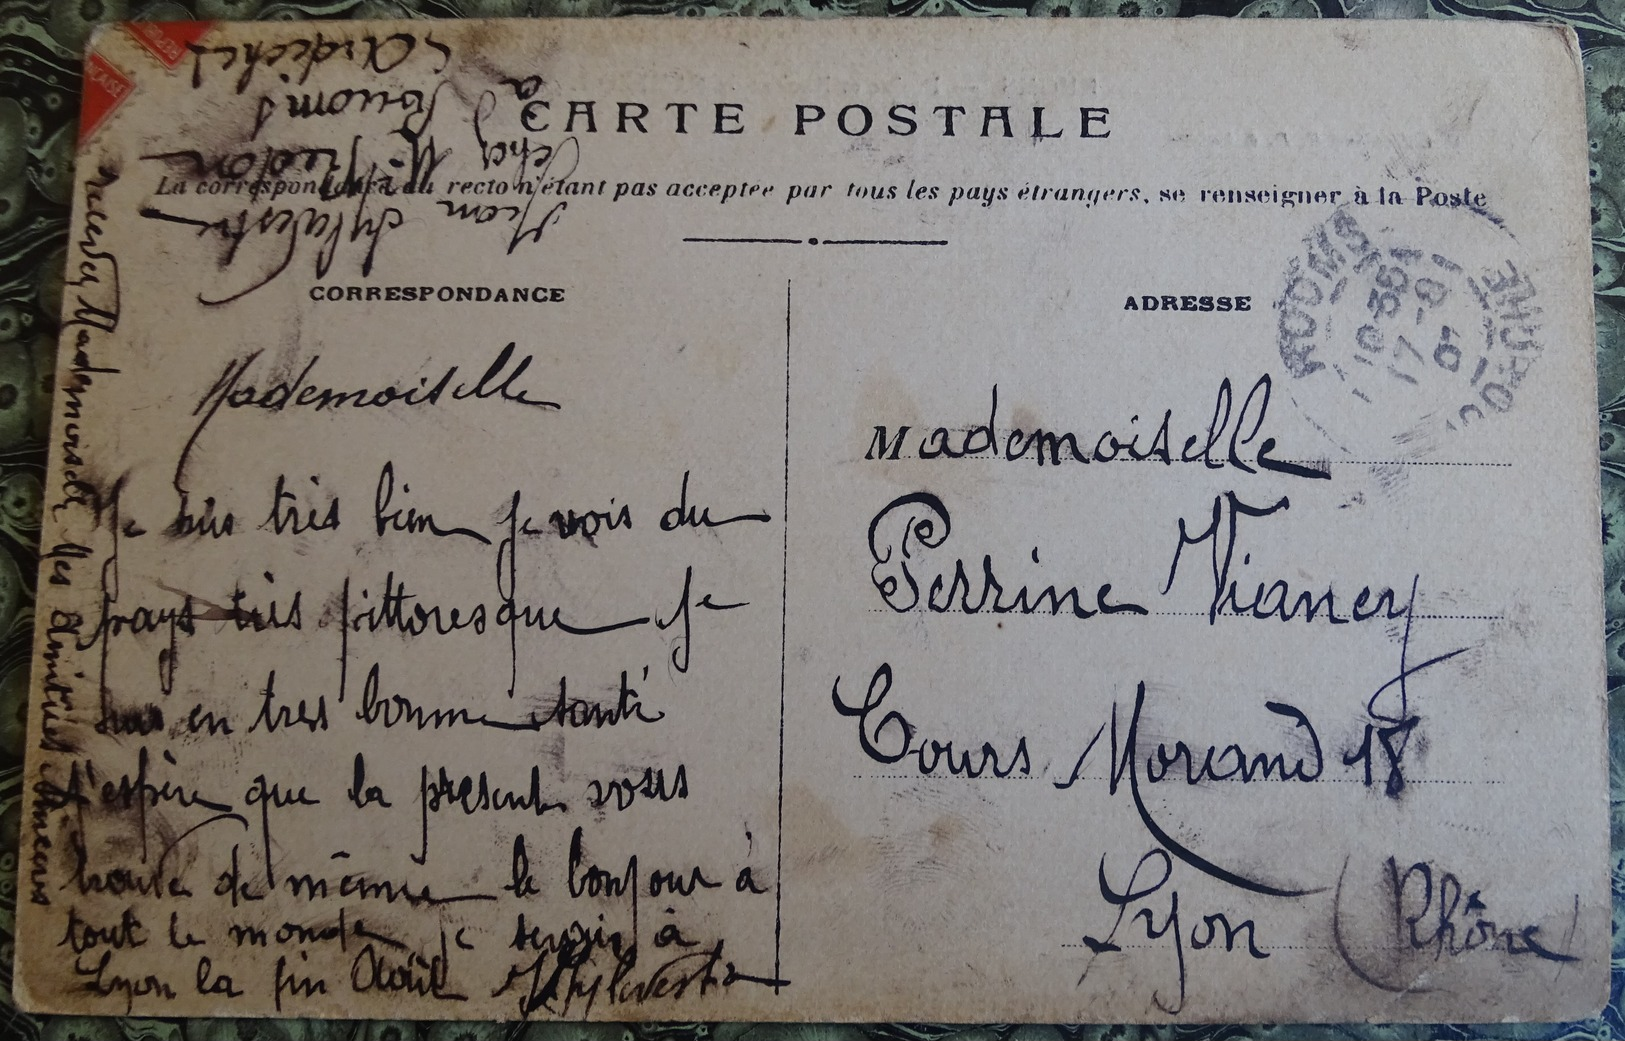 CARTE POSTALE
La correspondance au recto n'étant pas acceptée par tous les pays étrangers, se renseigner à la Poste
CORRESPONDANCE
Mademoiselle
Je suis très bien je vois du
pays très pittoresque je
suis en tres bonne santé
j'espère que la present vous
trouve de même le bonjour à
tout le monde je serai à
Lyon la fin Août JSylvestre
recevez Mademoiselle Mes Amitiés Sincers
Jean Sylvestre
chez Mr
à Ruoms
(Ardèche)
ADRESSE
RUOMS
10-35
17-8
07
ARDECHE
Mademoiselle
Perrine Vianey
Cours Morand 18
Lyon (Rhône)